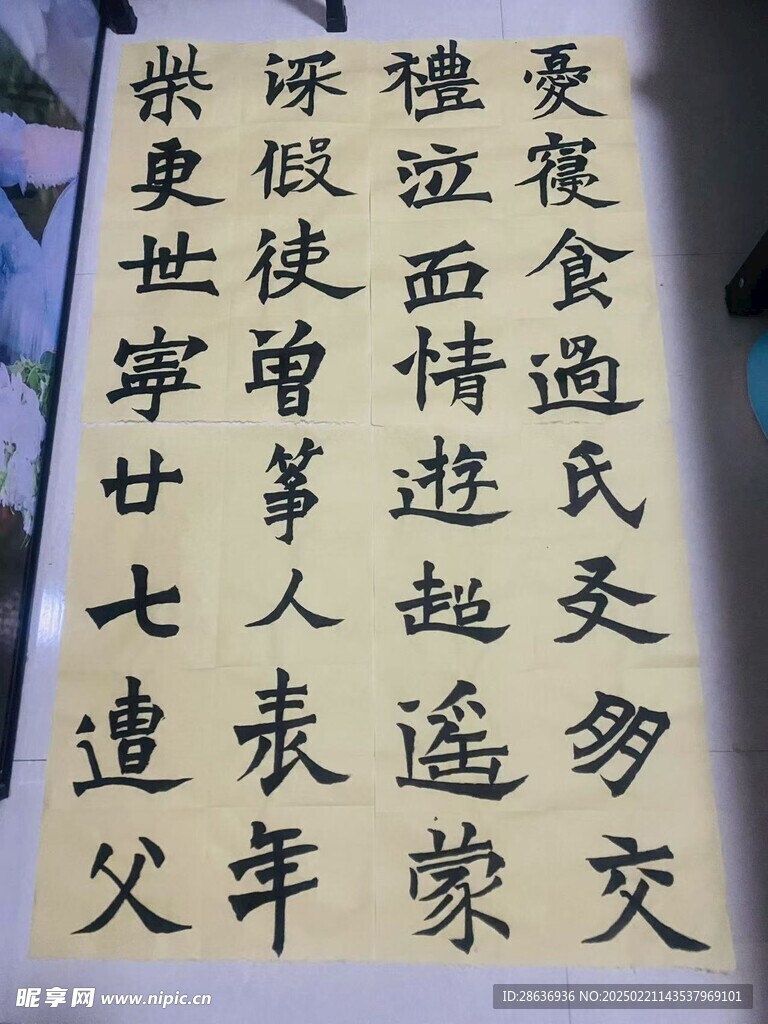 憂寢食過氏友朋交
禮泣血情遊超遙蒙
深假使曾筭人表年
柴更世寧廿七遭父
昵享网 www.nipic.cn
ID:28636936 NO:20250221143537969101